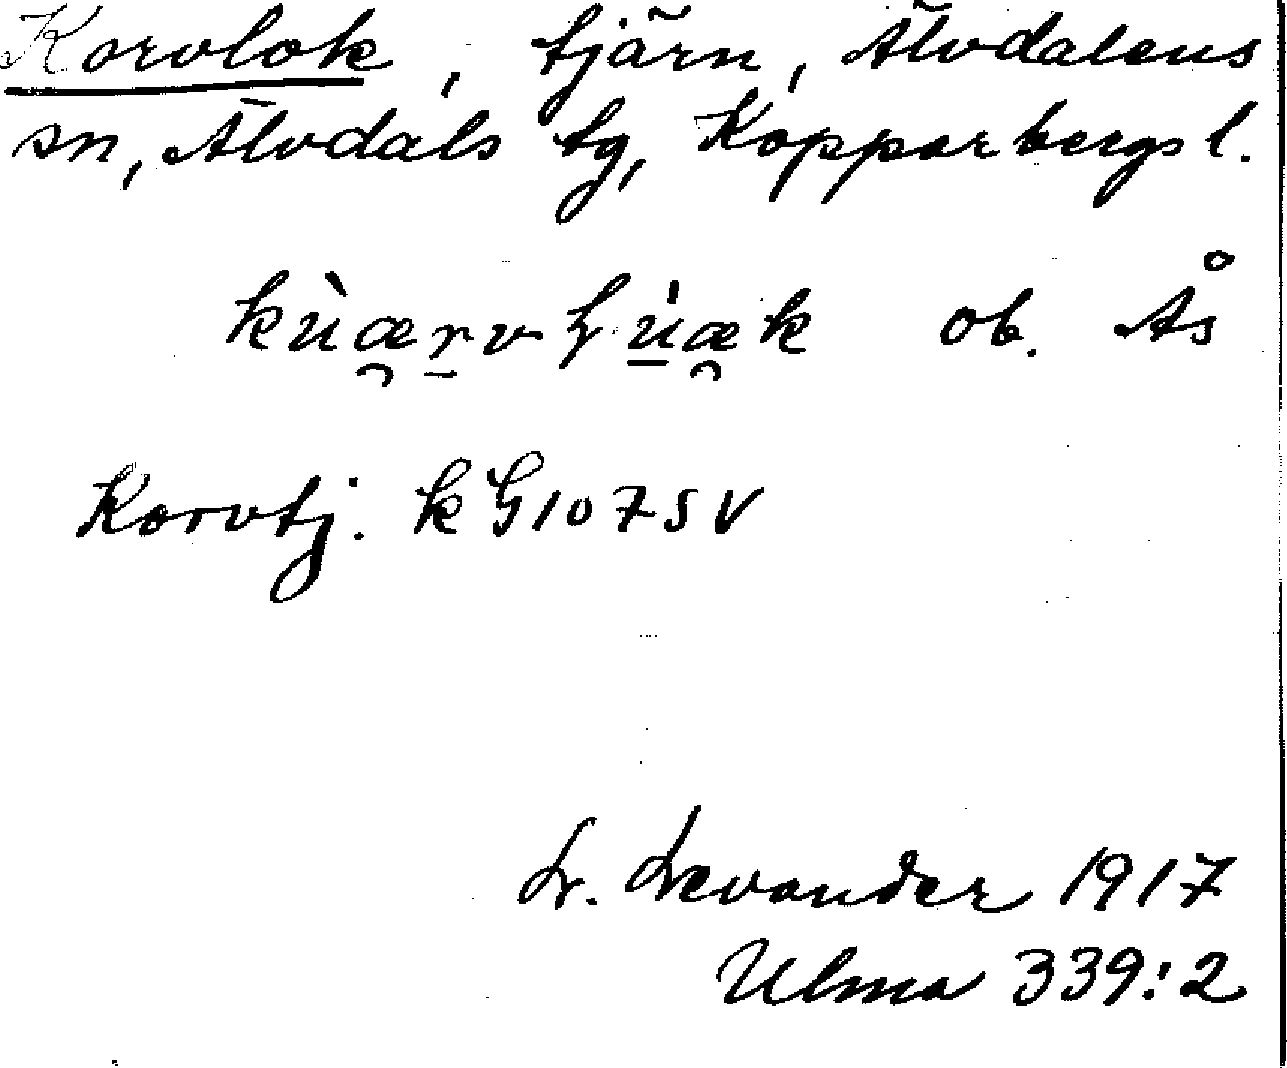 Korvlok, tjärn, Älvdalens
sn, Älvdals tg, Kopparbergs l.
kùæ̯r̠vɫú̠æ̯k ob. Ås
Korvtj. k G107SV
L. Levander 1917
Ulma 339:2